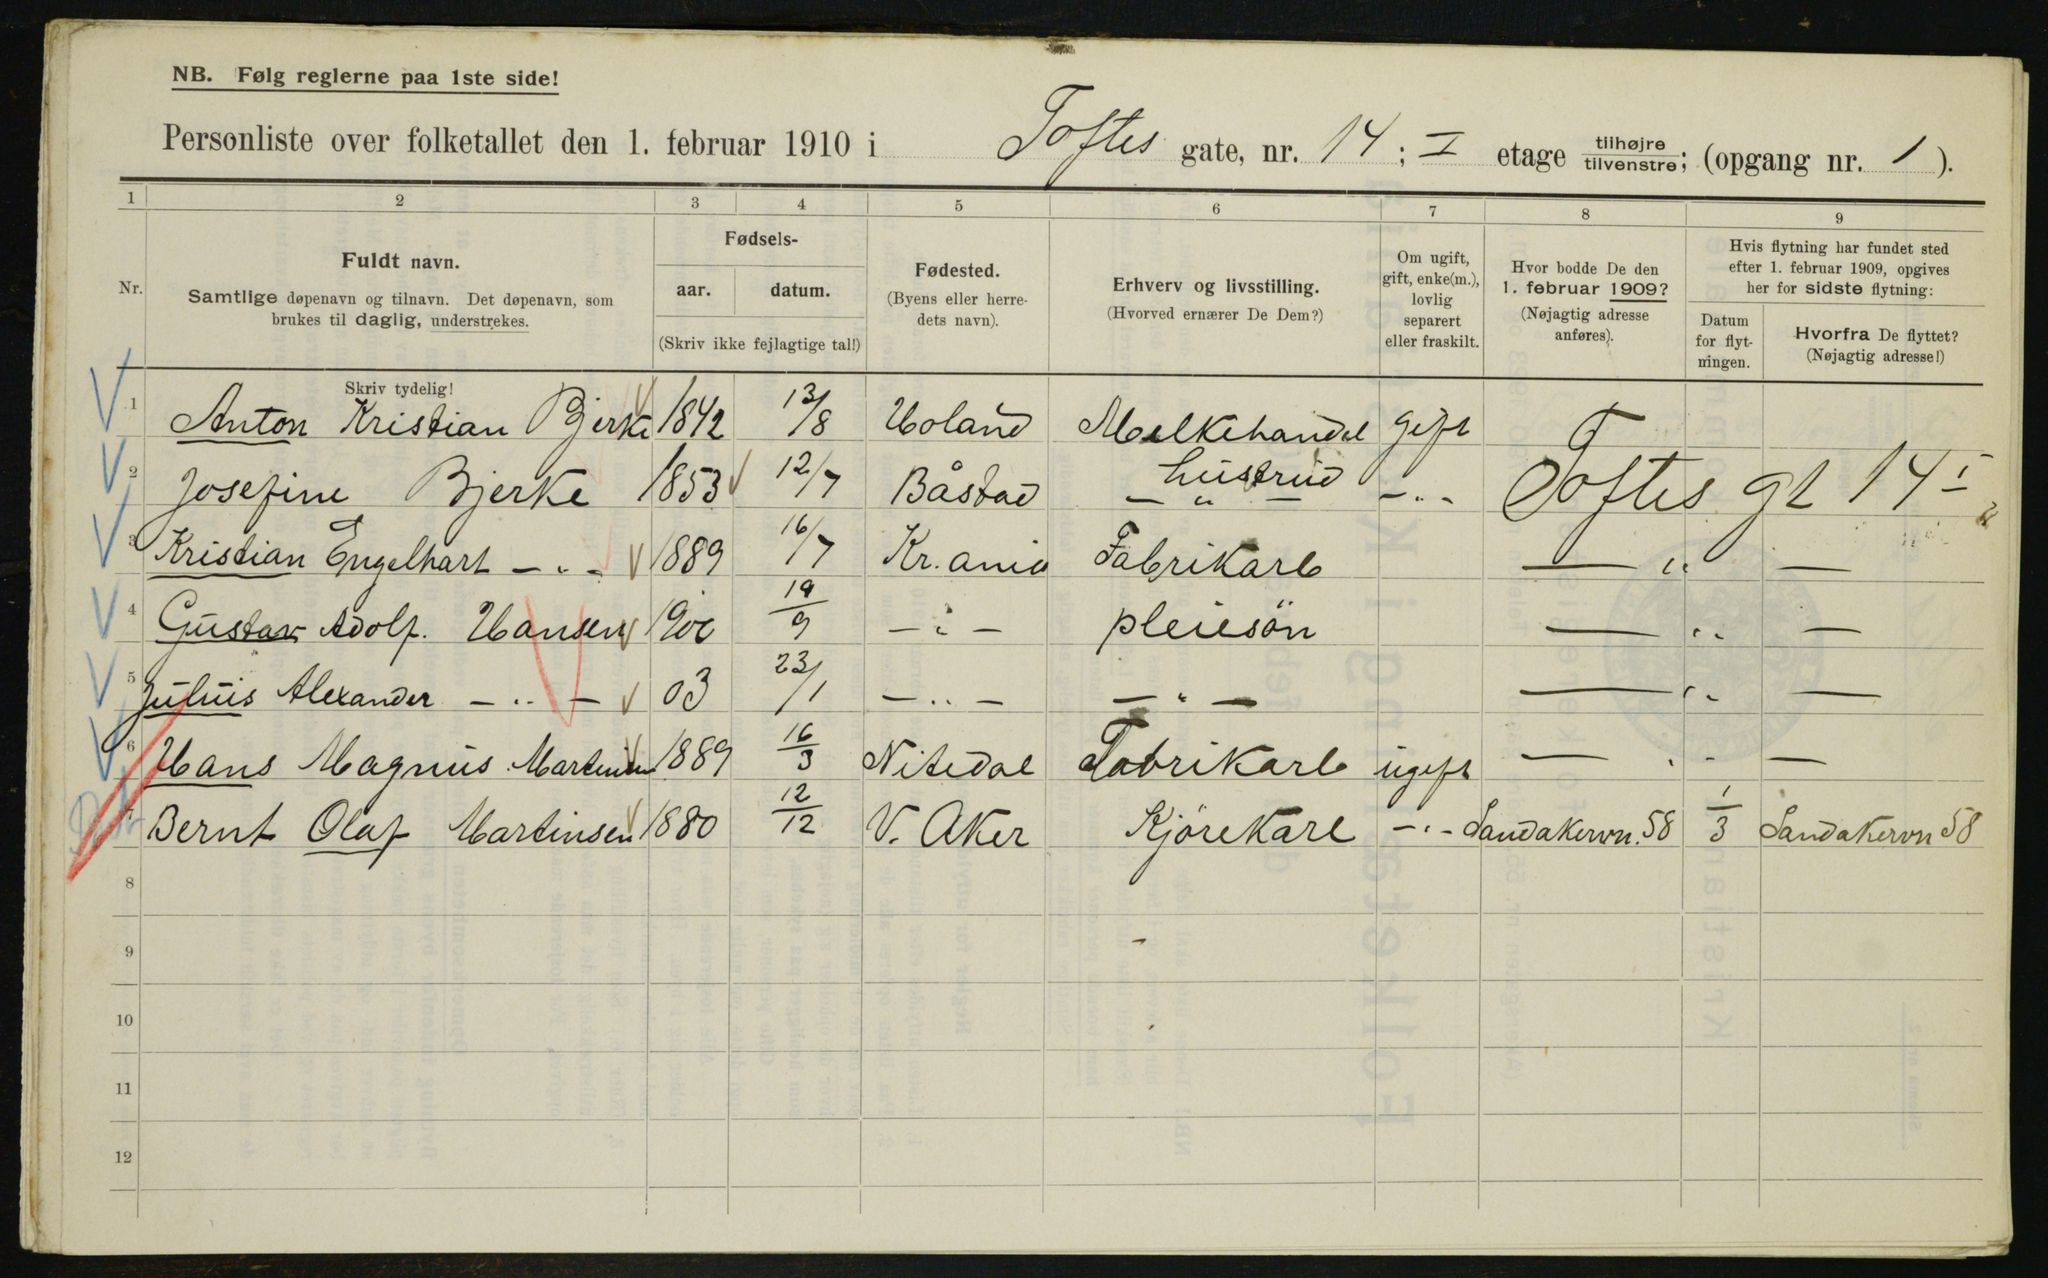 NB. Følg reglerne paa 1ste side!
Personliste over folketallet den 1. februar 1910 i Toftes gate, nr. 14 ; I etage tilhøjre tilvenstre; (opgang nr. 1 ).
1 2 3 4 5 6 7 8 9
Nr.
Fuldt navn.
Samtlige døpenavn og tilnavn. Det døpenavn, som
brukes til daglig, understrekes.
Skriv tydelig!
Fødsels-
aar. datum.
(Skriv ikke fejlagtige tal!)
Fødested.
(Byens eller herre-
dets navn).
Erhverv og livsstilling.
(Hvorved ernærer De Dem?)
Om ugift,
gift, enke(m.),
lovlig
separert
eller fraskilt.
Hvor bodde De den
1. februar 1909?
(Nøjagtig adresse
anføres).
Hvis flytning har fundet sted
efter 1. februar 1909, opgives
her for sidste flytning:
Datum
for flyt-
ningen.
Hvorfra De flyttet?
(Nøjagtig adresse!)
1 Anton Kristian Bjerke 1842 13/8 Høland Melkehandel gift
2 Josefine Bjerke 1853 12/7 Båstad — " — Hustrud — " — Toftes gt 14 I
3 Kristian Engelhart — " — 1889 16/7 Kr.ania Fabrikarb — " —
4 Gustav Adolf. Hansen 1900 19/9 — " — pleiesön — " —
5 Julius Alexander — " — 03 23/1 — " — — " — — " —
6 Hans Magnus Martinsen 1889 16/3 Nitedal Fabrikarb ugift — " —
7 Bernt Olaf Martinsen 1880 12/12 V. Aker Kjörekarl — " — Sandakervn. 58 1/3 Sandakervn 58
8
9
10
11
12